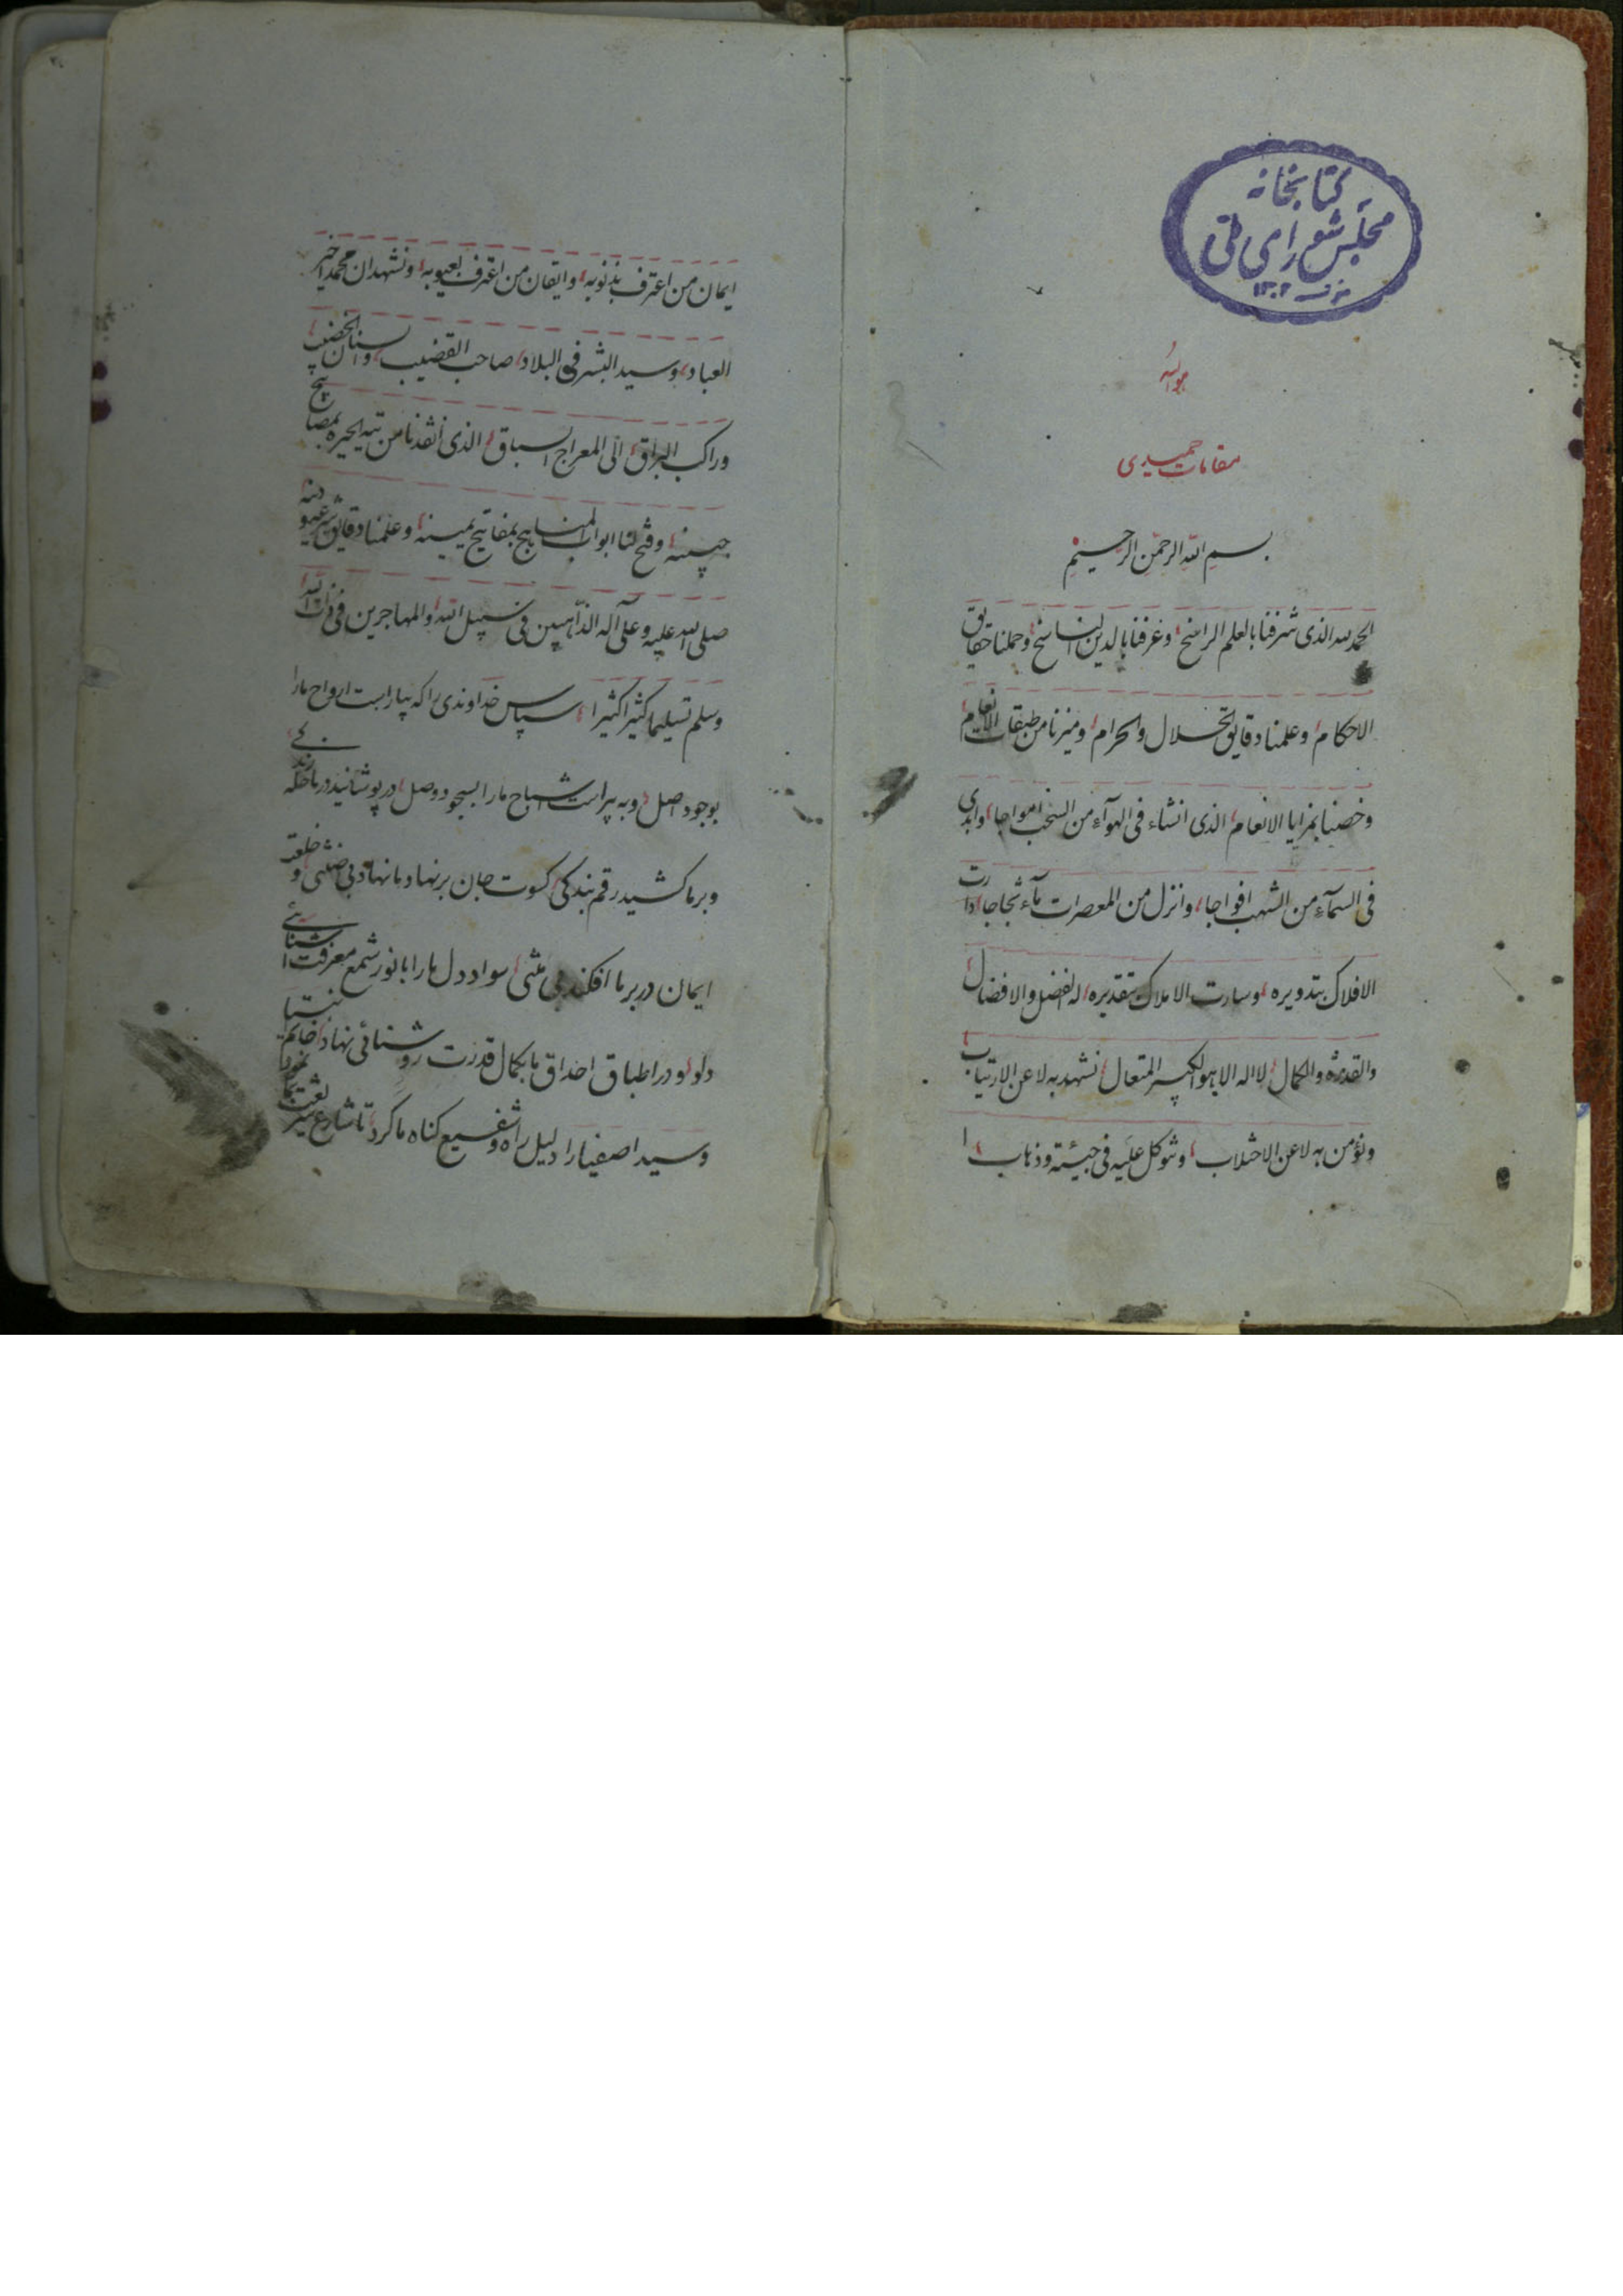 کتابخانه
مجلس شورای ملی
۱۳۰۲
هوالله
مقامات حمیدی
بسم الله الرحمن الرحیم
الحمدلله الذی شرفنا بالعلم الراسخ وعرفنا بالدین الناسخ وحملنا حقایق
الاحکام وعلمنا دقایق الحلال والحرام ومیزنا من طبقات الانعام
وخصنا بمزایا الانعام الذی انشاء فی الهوآء من السحب امواجا وابدی
فی السمآء من الشهب افواجا وانزل من المعصرات مآء ثجاجا ادارت
الافلاک بتدویره وسارت الاملاک بتقدیره له الفضل والافضال
والقدرة والکمال لااله الا هو الکبیر المتعال نشهد به لا عن الارتیاب
ونؤمن به لا عن الاختلاب ونتوکل علیه فی جیئة وذهاب
ایمان من اعترف بذنوبه وایقان من اعترف بعیوبه ونشهد ان محمدا خیر
العباد وسید البشر فی البلاد صاحب القضیب والسنان الخضیب
وراکب البراق الی المعراج السباق الذی انقذنا من تیه الحیره بمصابیح
جبینه وفتح لنا ابواب المناهج بمفاتیح یمینه وعلمنا دقایق شرعه ودینه
صلی الله علیه وعلی آله الذاهبین فی سبیل الله والمهاجرین فی ذات الله
وسلم تسلیما کثیرا کثیرا سپاس خداوندی را که بیاراست ارواح ما را
بوجود اصل وبه پیراست اشباح ما را بسجود وصل در پوشانید در ما حله زندکی
وبر ما کشید رقم بندکی کسوت جان بر نهاد ما نهاد بی ضنتی و خلعت
ایمان در بر ما افکند بی منتی سواد دل ما را با نور شمع معرفت آشنائی
داد ودر اطباق احداق ما بکمال قدرت روشنائی نهاد خاتم انبیا
وسید اصفیا را دلیل راه وشفیع کناه ما کرد تا شارع شریعت بما نمود